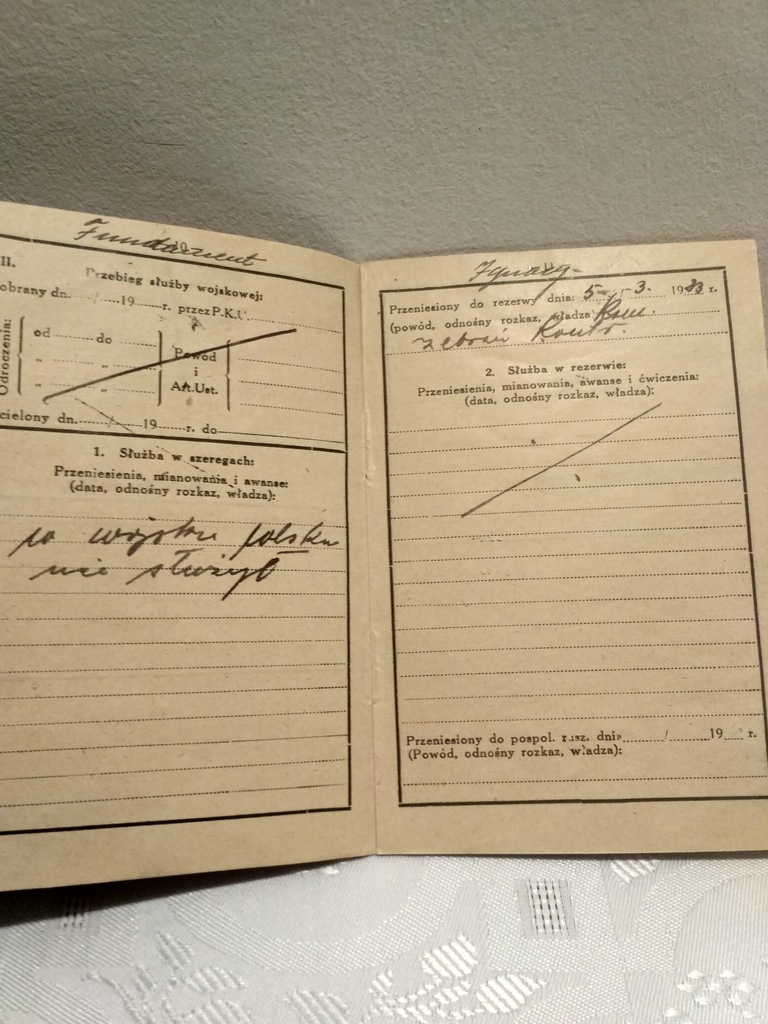 Fundament
II.
Przebieg służby wojskowej:
obrany dn. 19 r. przez P.K.U.
Odroczenia:
od do
" "
" "
Powód
i
Art.Ust.
cielony dn. / 19 r. do
1. Służba w szeregach:
Przeniesienia, mianowania i awanse:
(data, odnośny rozkaz, władza):
w wojsku polskim
nie służył
Ignacy
Przeniesiony do rezerwy dnia: 5 - 3. 19 r.
(powód, odnośny rozkaz, władza) Kom.
zebrań Kontr.
2. Służba w rezerwie:
Przeniesienia, mianowania, awanse i ćwiczenia:
(data, odnośny rozkaz, władza):
Przeniesiony do pospol. rusz. dnia / 19 r.
(Powód, odnośny rozkaz, władza):